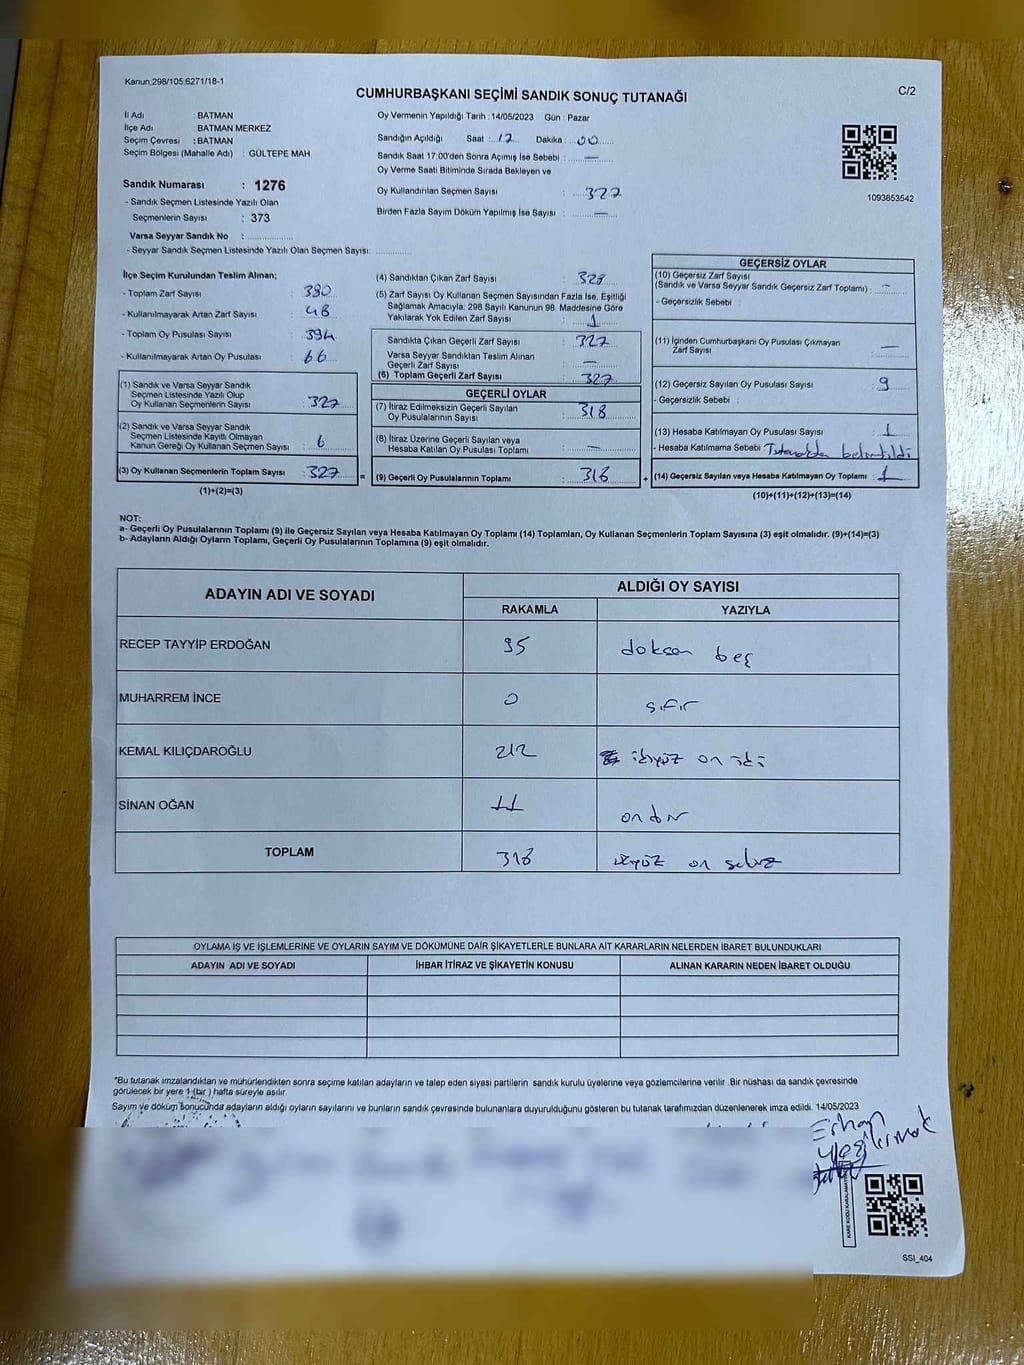 Kanun:298/105,6271/18-1
CUMHURBAŞKANI SEÇİMİ SANDIK SONUÇ TUTANAĞI
C/2
İl Adı : BATMAN
İlçe Adı : BATMAN MERKEZ
Seçim Çevresi : BATMAN
Seçim Bölgesi (Mahalle Adı) : GÜLTEPE MAH.
Oy Vermenin Yapıldığı Tarih : 14/05/2023 Gün : Pazar
Sandığın Açıldığı Saat : 17 Dakika : 00
Sandık Saat 17:00'den Sonra Açımış İse Sebebi : —
Oy Verme Saati Bitiminde Sırada Bekleyen ve
Oy Kullandırılan Seçmen Sayısı : 327
Birden Fazla Sayım Döküm Yapılmış İse Sayısı : —
1093853542
Sandık Numarası : 1276
- Sandık Seçmen Listesinde Yazılı Olan
Seçmenlerin Sayısı : 373
Varsa Seyyar Sandık No :
- Seyyar Sandık Seçmen Listesinde Yazılı Olan Seçmen Sayısı:
İlçe Seçim Kurulundan Teslim Alınan;
- Toplam Zarf Sayısı : 380
- Kullanılmayarak Artan Zarf Sayısı : 48
- Toplam Oy Pusulası Sayısı : 394
- Kullanılmayarak Artan Oy Pusulası : 66
(1) Sandık ve Varsa Seyyar Sandık
Seçmen Listesinde Yazılı Olup
Oy Kullanan Seçmenlerin Sayısı : 327
(2) Sandık ve Varsa Seyyar Sandık
Seçmen Listesinde Kayıtlı Olmayan
Kanun Gereği Oy Kullanan Seçmen Sayısı : 6
(3) Oy Kullanan Seçmenlerin Toplam Sayısı : 327 =
(1)+(2)=(3)
(4) Sandıktan Çıkan Zarf Sayısı : 328
(5) Zarf Sayısı Oy Kullanan Seçmen Sayısından Fazla İse, Eşitliği
Sağlamak Amacıyla, 298 Sayılı Kanunun 98. Maddesine Göre
Yakılarak Yok Edilen Zarf Sayısı : 1
Sandıkta Çıkan Geçerli Zarf Sayısı : 327
Varsa Seyyar Sandıktan Teslim Alınan
Geçerli Zarf Sayısı : —
(6) Toplam Geçerli Zarf Sayısı : 327
GEÇERLİ OYLAR
(7) İtiraz Edilmeksizin Geçerli Sayılan
Oy Pusulalarının Sayısı : 318
(8) İtiraz Üzerine Geçerli Sayılan veya
Hesaba Katılan Oy Pusulası Toplamı : —
(9) Geçerli Oy Pusulalarının Toplamı : 318 +
GEÇERSİZ OYLAR
(10) Geçersiz Zarf Sayısı
(Sandık ve Varsa Seyyar Sandık Geçersiz Zarf Toplamı) : —
- Geçersizlik Sebebi :
(11) İçinden Cumhurbaşkanı Oy Pusulası Çıkmayan
Zarf Sayısı : —
(12) Geçersiz Sayılan Oy Pusulası Sayısı : 9
- Geçersizlik Sebebi :
(13) Hesaba Katılmayan Oy Pusulası Sayısı : 1
- Hesaba Katılmama Sebebi : Tutanakda belirtildi
(14) Geçersiz Sayılan veya Hesaba Katılmayan Oy Toplamı : 1
(10)+(11)+(12)+(13)=(14)
NOT:
a- Geçerli Oy Pusulalarının Toplamı (9) ile Geçersiz Sayılan veya Hesaba Katılmayan Oy Toplamı (14) Toplamları, Oy Kullanan Seçmenlerin Toplam Sayısına (3) eşit olmalıdır. (9)+(14)=(3)
b- Adayların Aldığı Oyların Toplamı, Geçerli Oy Pusulalarının Toplamına (9) eşit olmalıdır.
ADAYIN ADI VE SOYADI ALDIĞI OY SAYISI
RAKAMLA YAZIYLA
RECEP TAYYİP ERDOĞAN 95 doksan beş
MUHARREM İNCE 0 sıfır
KEMAL KILIÇDAROĞLU 212 ikiyüz on iki
SİNAN OĞAN 11 onbir
TOPLAM 318 üçyüz on sekiz
OYLAMA İŞ VE İŞLEMLERİNE VE OYLARIN SAYIM VE DÖKÜMÜNE DAİR ŞİKAYETLERLE BUNLARA AİT KARARLARIN NELERDEN İBARET BULUNDUKLARI
ADAYIN ADI VE SOYADI İHBAR İTİRAZ VE ŞİKAYETİN KONUSU ALINAN KARARIN NEDEN İBARET OLDUĞU
*Bu tutanak imzalandıktan ve mühürlendikten sonra seçime katılan adayların ve talep eden siyasi partilerin sandık kurulu üyelerine veya gözlemcilerine verilir. Bir nüshası da sandık çevresinde
görülecek bir yere 1 (bir) hafta süreyle asılır.
Sayım ve döküm sonucunda adayların aldığı oyların sayılarını ve bunların sandık çevresinde bulunanlara duyurulduğunu gösteren bu tutanak tarafımızdan düzenlenerek imza edildi. 14/05/2023
Erhan
Yeşilırmak
SSI_404